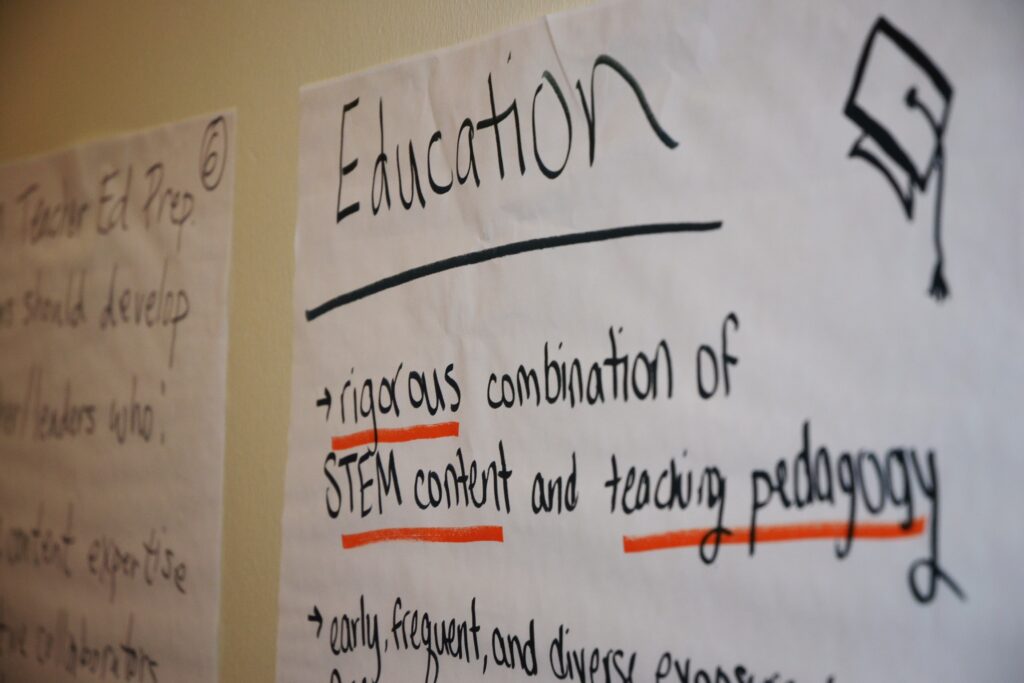 6
Teacher Ed Prep.
should develop
leaders who:
content expertise
collaborators
Education
→ rigorous combination of
STEM content and teaching pedagogy
→ early, frequent, and diverse